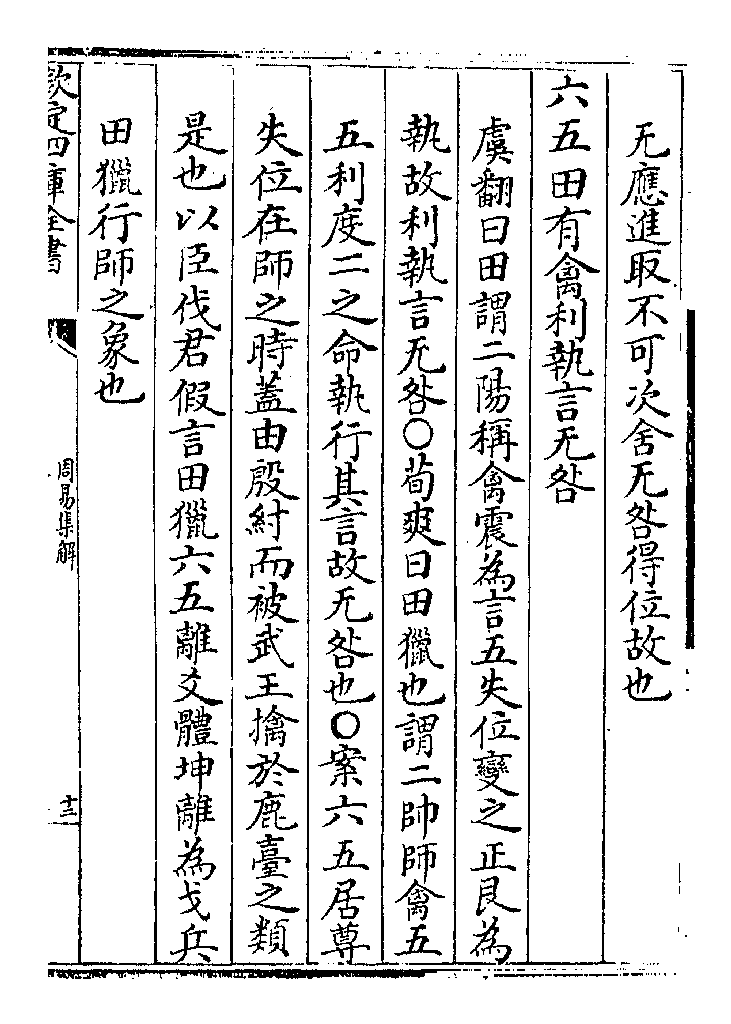 无應進取不可次舍无咎得位故也
六五田有禽利執言无咎
虞翻曰田謂二陽稱禽震為言五失位變之正艮為
執故利執言无咎○荀爽曰田獵也謂二帥師禽五
五利度二之命執行其言故无咎也○案六五居尊
失位在師之時蓋由殷紂而被武王擒於鹿臺之類
是也以臣伐君假言田獵六五離爻體坤離為戈兵
田獵行師之象也
欽定四庫全書
周易集解
十三